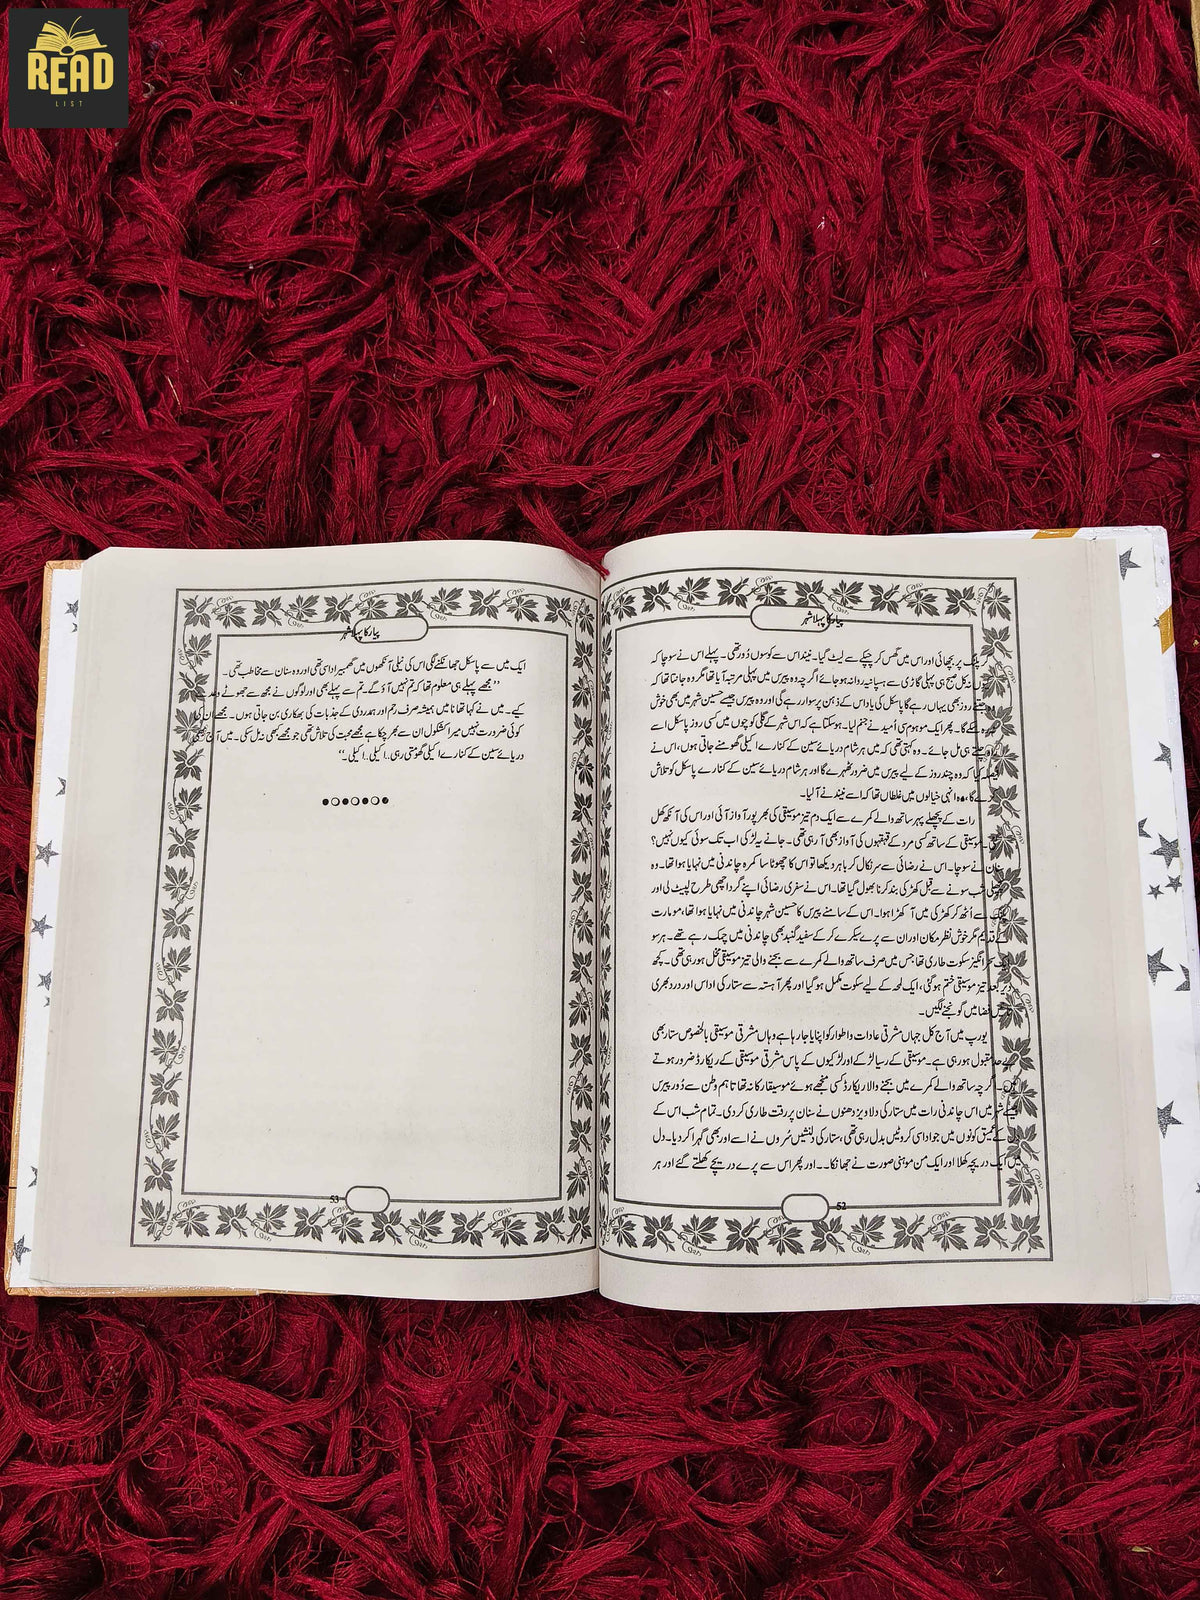 READ
LIST
پیار کا پہلا شہر
پلنگ پر بچھائی اور اس میں گھس کر چپکے سے لیٹ گیا۔ نیند اس سے کوسوں دُور تھی۔ پہلے اس نے سوچا کہ
نہ کل صبح ہی پہلی گاڑی سے ہسپانیہ روانہ ہو جائے اگر چہ وہ پیرس میں پہلی مرتبہ آیا تھا مگر وہ جانتا تھا کہ
جتنے روز بھی یہاں رہے گا پاسکل کی یاد اس کے ذہن پر سوار رہے گی اور وہ پیرس جیسے حسین شہر میں بھی خوش
نہ رہ سکے گا۔ پھر ایک موہوم سی اُمید نے جنم لیا۔ ہو سکتا ہے کہ اس شہر کے گلی کوچوں میں کسی روز پاسکل اسے
چلتے ہی مل جائے۔ وہ کہتی تھی کہ میں ہر شام دریائے سین کے کنارے اکیلی گھومنے جاتی ہوں، اس نے
فیصلہ کیا کہ وہ چند روز کے لیے پیرس میں ضرور ٹھہرے گا اور ہر شام دریائے سین کے کنارے پاسکل کو تلاش
کرے گا، وہ انہی خیالوں میں غلطاں تھا کہ اسے نیند نے آلیا۔
رات کے پچھلے پہر ساتھ والے کمرے سے ایک دم تیز موسیقی کی بھر پور آواز آئی اور اس کی آنکھ کھل
گئی۔ موسیقی کے ساتھ کسی مرد کے قہقہوں کی آواز بھی آ رہی تھی۔ جانے یہ لڑکی اب تک سوئی کیوں نہیں؟
سنان نے سوچا۔ اس نے رضائی سے سر نکال کر باہر دیکھا تو اس کا چھوٹا سا کمرہ چاندنی میں نہایا ہوا تھا۔ وہ
پچھلی شب سونے سے قبل کھڑکی بند کرنا بھول گیا تھا۔ اس نے سفری رضائی اپنے گرد اچھی طرح لپیٹ لی اور
پلنگ سے اُٹھ کر کھڑکی میں آ کھڑا ہوا۔ اس کے سامنے پیرس کا حسین شہر چاندنی میں نہایا ہوا تھا، مومارت
کے قدیم مگر خوش نظر مکان اور ان سے پرے سیکرے کر کے سفید گنبد بھی چاندنی میں چمک رہے تھے۔ ہر سو
ایک سحر انگیز سکوت طاری تھا جس میں صرف ساتھ والے کمرے سے بجنے والی تیز موسیقی مخل ہو رہی تھی۔ کچھ
دیر بعد تیز موسیقی ختم ہو گئی، ایک لمحہ کے لیے سکوت مکمل ہو گیا اور پھر آہستہ سے ستار کی اداس اور درد بھری
فضا میں گونجنے لگیں۔
یورپ میں آج کل جہاں مشرقی عادات و اطوار کو اپنایا جا رہا ہے وہاں مشرقی موسیقی بالخصوص ستار بھی
بے حد مقبول ہو رہی ہے۔ موسیقی کے رسیا لڑکے اور لڑکیوں کے پاس مشرقی موسیقی کے ریکارڈ ضرور ہوتے
ہیں۔ اگر چہ ساتھ والے کمرے میں بجنے والا ریکارڈ کسی منجھے ہوئے موسیقار کا نہ تھا تاہم وطن سے دُور پیرس
جیسے شہر میں اس چاندنی رات میں ستار کی دلاویز دھنوں نے سنان پر رقت طاری کر دی۔ تمام شب اس کے
دل کے عمیق کونوں میں جو اداسی کروٹیں بدل رہی تھی، ستار کی دلنشیں سُروں نے اسے اور بھی گہرا کر دیا۔ دل
میں ایک دریچہ کھلا اور ایک من موہنی صورت نے جھانکا۔۔ اور پھر اس سے پرے دریچے کھلتے گئے اور ہر
52
پیار کا پہلا شہر
ایک میں سے پاسکل جھانکنے لگی اس کی نیلی آنکھوں میں گھمبیر اداسی تھی اور وہ سنان سے مخاطب تھی۔
’’مجھے پہلے ہی معلوم تھا کہ تم نہیں آؤ گے۔ تم سے پہلے بھی اور لوگوں نے مجھ سے جھوٹے وعدے
کیے۔ میں نے کہا تھا نا میں ہمیشہ صرف رحم اور ہمدردی کے جذبات کی بھکاری بن جاتی ہوں۔ مجھے ان کی
کوئی ضرورت نہیں میرا کشکول ان سے بھر چکا ہے مجھے محبت کی تلاش تھی جو مجھے کبھی نہ مل سکی۔ میں آج بھی
دریائے سین کے کنارے اکیلی گھومتی رہی۔ اکیلی.. اکیلی۔‘‘
53